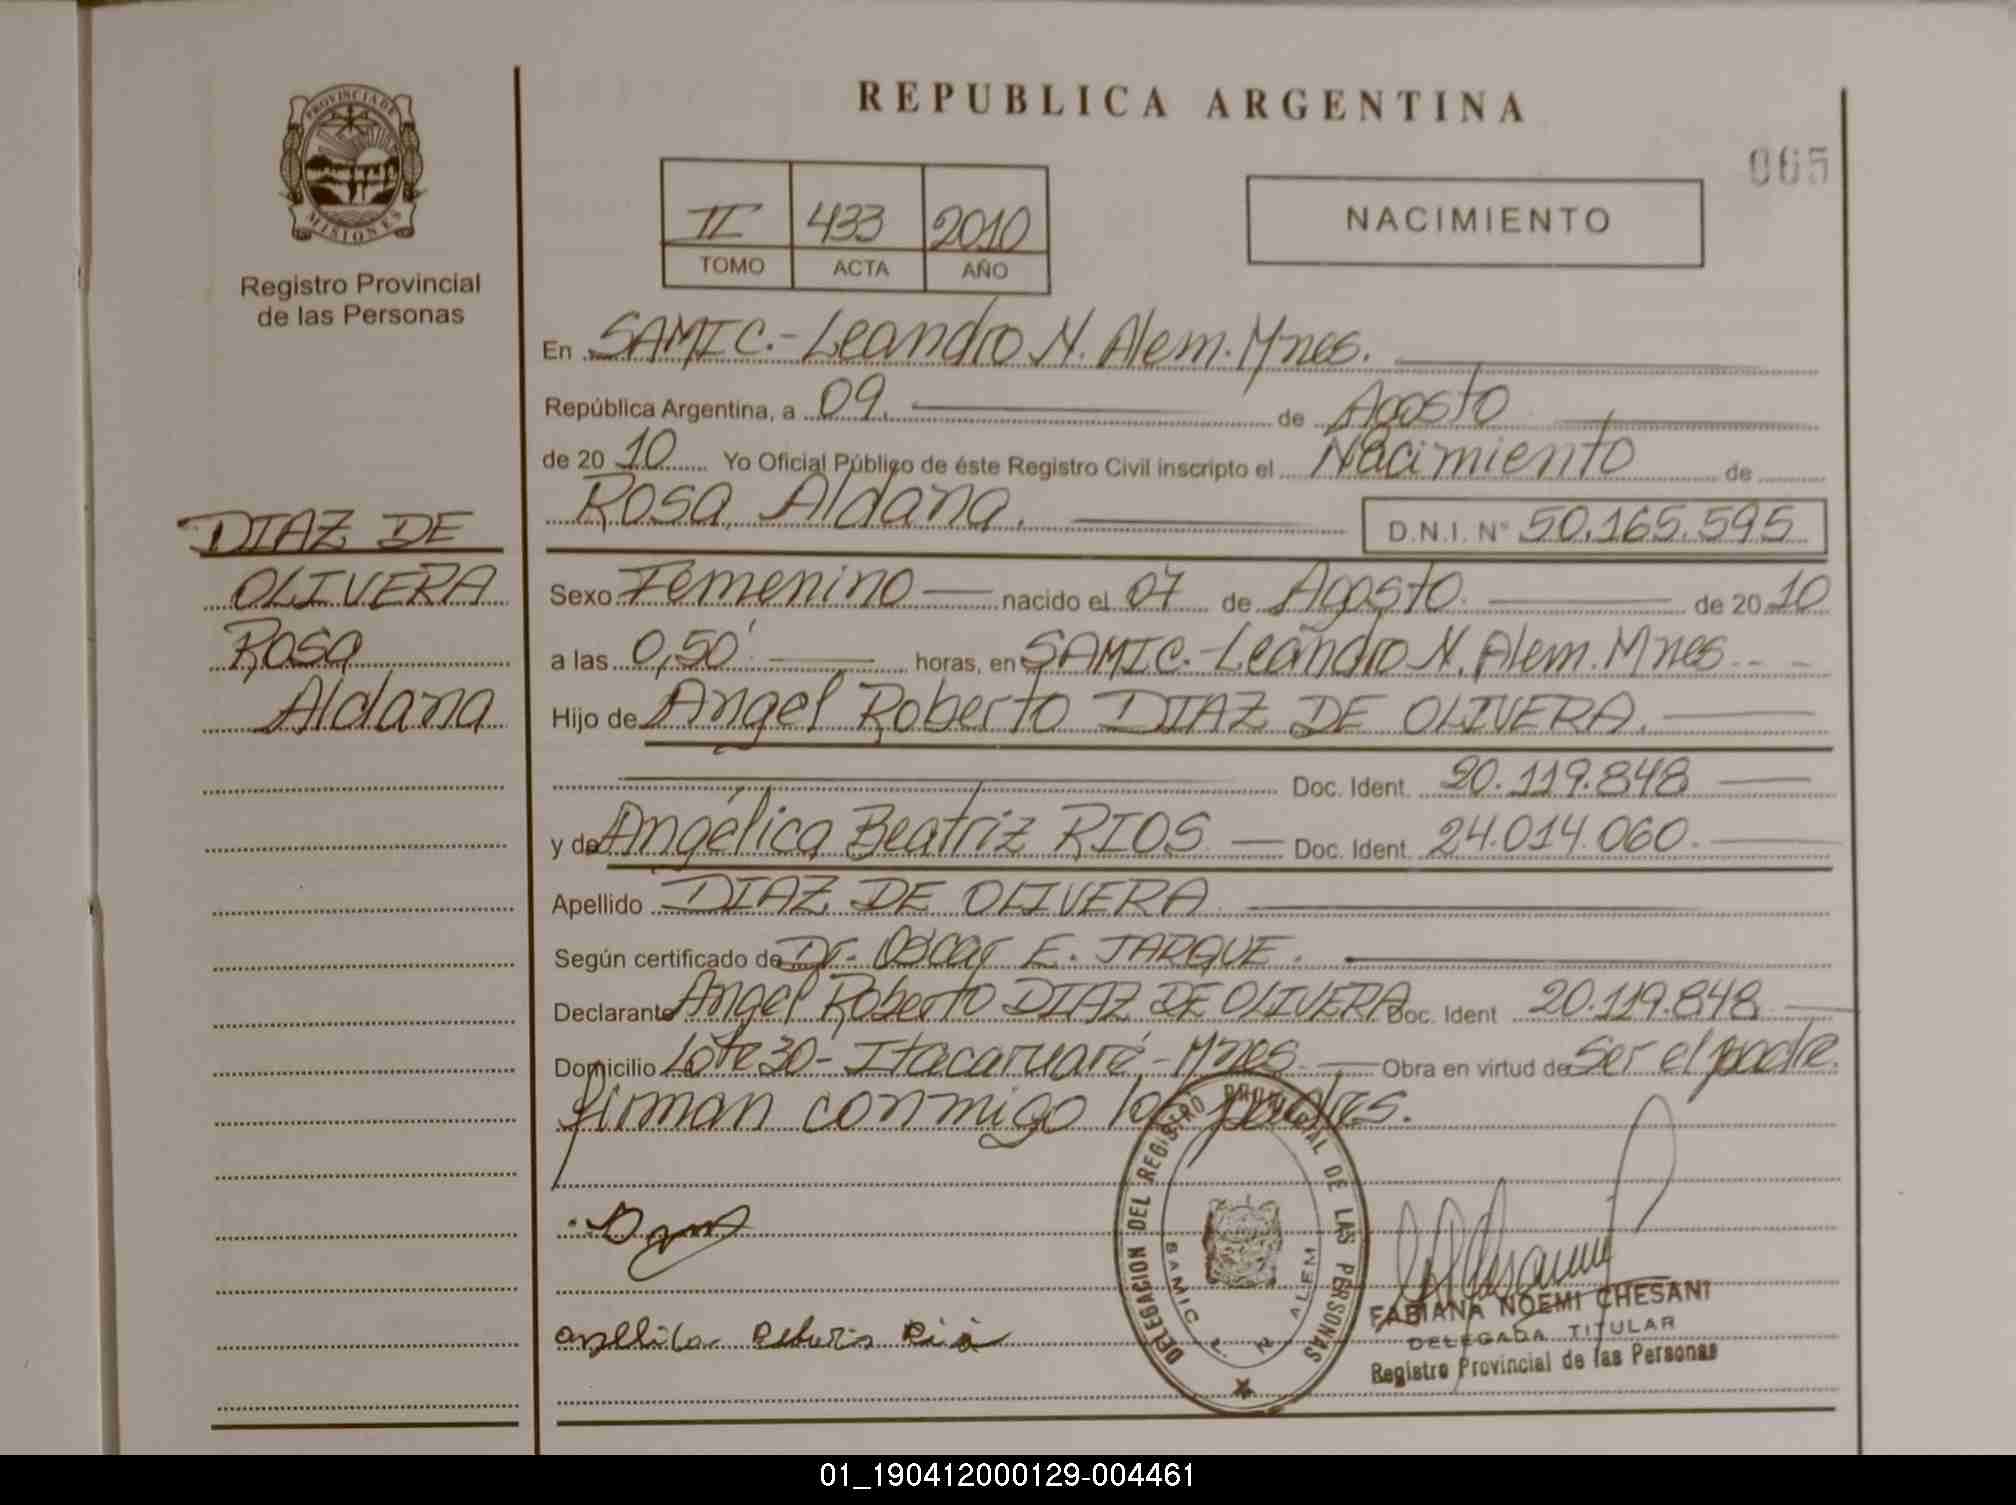 PROVINCIA DE
MISIONES
Registro Provincial
de las Personas
DIAZ DE
OLIVERA
Rosa
Aldana
REPUBLICA ARGENTINA
065
II 433 2010
TOMO ACTA AÑO
NACIMIENTO
En SAMIC.-Leandro N. Alem. Mnes.
República Argentina, a 09. de Agosto
de 20 10 Yo Oficial Público de éste Registro Civil inscripto el Nacimiento de
Rosa Aldana. D.N.I. N° 50.165.595
Sexo Femenino nacido el 07 de Agosto. de 20 10
a las 0,50' horas, en SAMIC.-Leandro N. Alem. Mnes
Hijo de Angel Roberto DIAZ DE OLIVERA.
Doc. Ident. 20.119.848
y de Angélica Beatriz RIOS Doc. Ident. 24.014.060.
Apellido DIAZ DE OLIVERA
Según certificado de Dr. Oscar E. JARQUE.
Declarante Angel Roberto DIAZ DE OLIVERA Doc. Ident 20.119.848
Domicilio Lote 30- Itacaruaré-Mnes. Obra en virtud de Ser el padre.
firman conmigo los padres.
DELEGACION DEL REGISTRO PROVINCIAL DE LAS PERSONAS
SAMIC L. N. ALEM
FABIANA NOEMI CHESANI
DELEGADA TITULAR
Registro Provincial de las Personas
01_190412000129-004461